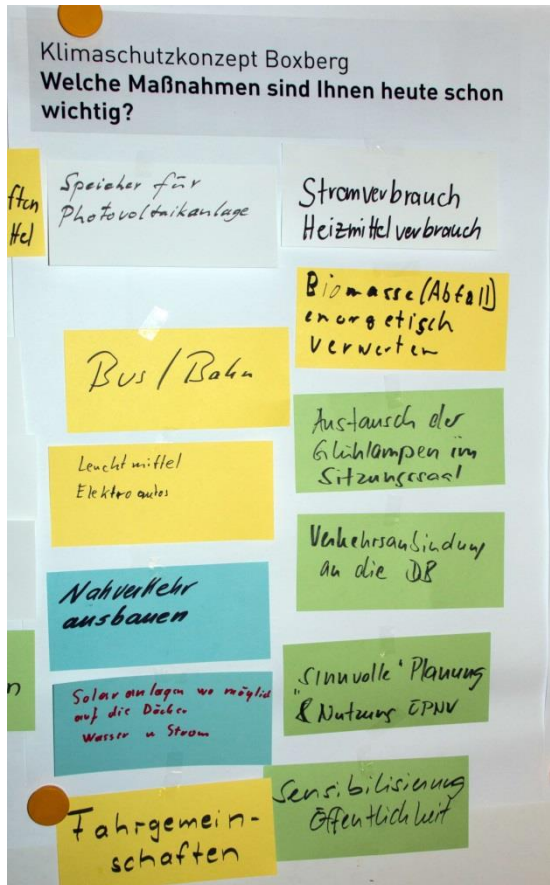 Klimaschutzkonzept Boxberg
Welche Maßnahmen sind Ihnen heute schon
wichtig?
ften
ttel
Speicher für
Photovoltaikanlage
Bus / Bahn
Leuchtmittel
Elektroautos
Nahverkehr
ausbauen
Solaranlagen wo möglich
auf die Dächer
Wasser u Strom
n
Fahrgemein-
schaften
Stromverbrauch
Heizmittelverbrauch
Biomasse (Abfall)
energetisch
verwerten
Austausch der
Glühlampen im
Sitzungssaal
Verkehrsanbindung
an die DB
"sinnvolle" Planung
& Nutzung ÖPNV
Sensibilisierung
Öffentlichkeit